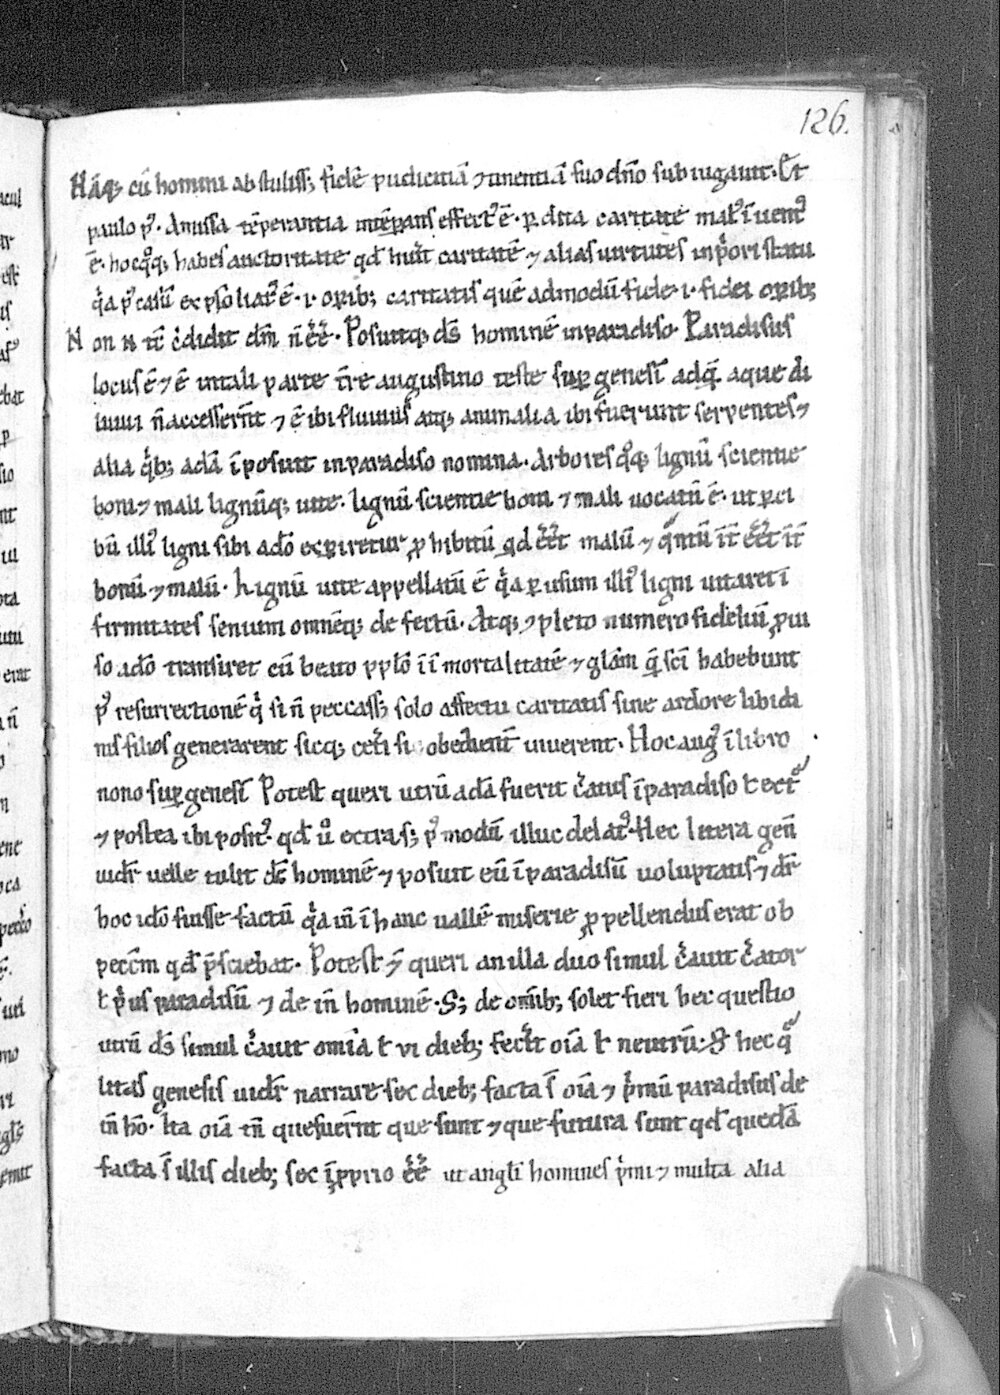 126.
Nāq; cū homini abstuliss; fidē pudicitiā ⁊tinentiā suo dn̄o subiugauit. Et
paulo p᷒. Amissa tēperantia intēperans effect᷒ ē. ꝑdita caritate mal᷒ īuent᷒
ē. hocq͛q; habes auctoritate qđ huit caritatē ⁊ alias uirtutes in pͥori statu
qͥa p᷒ casū expsoliat᷒ ē .i. oꝑib; caritatis quē admodū fide .i. fidei oꝑib;
Non
Posuitq; dš hominē in paradiso. Paradisus
locus ē ⁊ ē in tali parte tr̄e augustino teste suꝑ genesī adq̄ aque di
luuii n̄ accesserūt ⁊ ē ibi fluuius atq; animalia ibi fuerunt serpentes ⁊
alia qͥb; adā īposuit in paradiso nomina. Arbores q͛q; lignū scientie
boni ⁊ mali lignūq; uite. lignū scientie boni ⁊ mali uocatū ē. ut ꝑ ci
bū illi᷒ ligni sibi adō exꝑiretur ꝓhibitū qđ eēt malū ⁊ qͣntū īt eēt īt
bonū ⁊ malū. Lignū uite appellatū ē qͥa ꝑ usum illi᷒ ligni uitaret ī
firmitates senium omnēq; defectū. Atq; ⁊pleto numero fideliū ꝓui
so adō transiret cū beato pplo ī īmortalitatē ⁊ glām q̄ sc̄i habebunt
p᷒ resurrectionē qͥ si n̄ peccass; solo affectu caritatis sine ardore libidi
nis filios generarent sicq; cet̾i si obedirent uiuerent. Hoc aug᷒ ī libro
nono suꝑ genesī Potest queri utrū adā fuerit cͥatus ī paradiso ł extͣ
⁊ postea ibi posit᷒. qđ u͛o extra s; p᷒modū illuc delat᷒. Hec litera geñ
uidr̄ uelle tulit dš hominē ⁊ posuit eū ī paradisū uoluptatis ⁊ dr̄
hoc idō fuisse factū qͥa in ī hanc uallē miserie ꝓpellendus erat ob
pecc̄m qđ p̄sciebat. Potest ⁊̄ queri an illa duo simul cͥauit cͥator
ł pͥus paradisū ⁊ dein̄ hominē. S; de omīb; solet fieri hec questio
utrū dš simul cͥauit omīa ł vi dieb; fec̾it oīa ł neutrū. S; hec qͣ
litas genesis uidr̄ narrare sec dieb; facta s̄ oīa ⁊ pͥmū paradisus de
in̄ hō. Ita oīa tn̄ que fuerūt que sunt ⁊ que futura sunt qđ quedā
facta s̄ illis dieb; sec īpprio eē ut angli homines pͥmi ⁊ multa alia